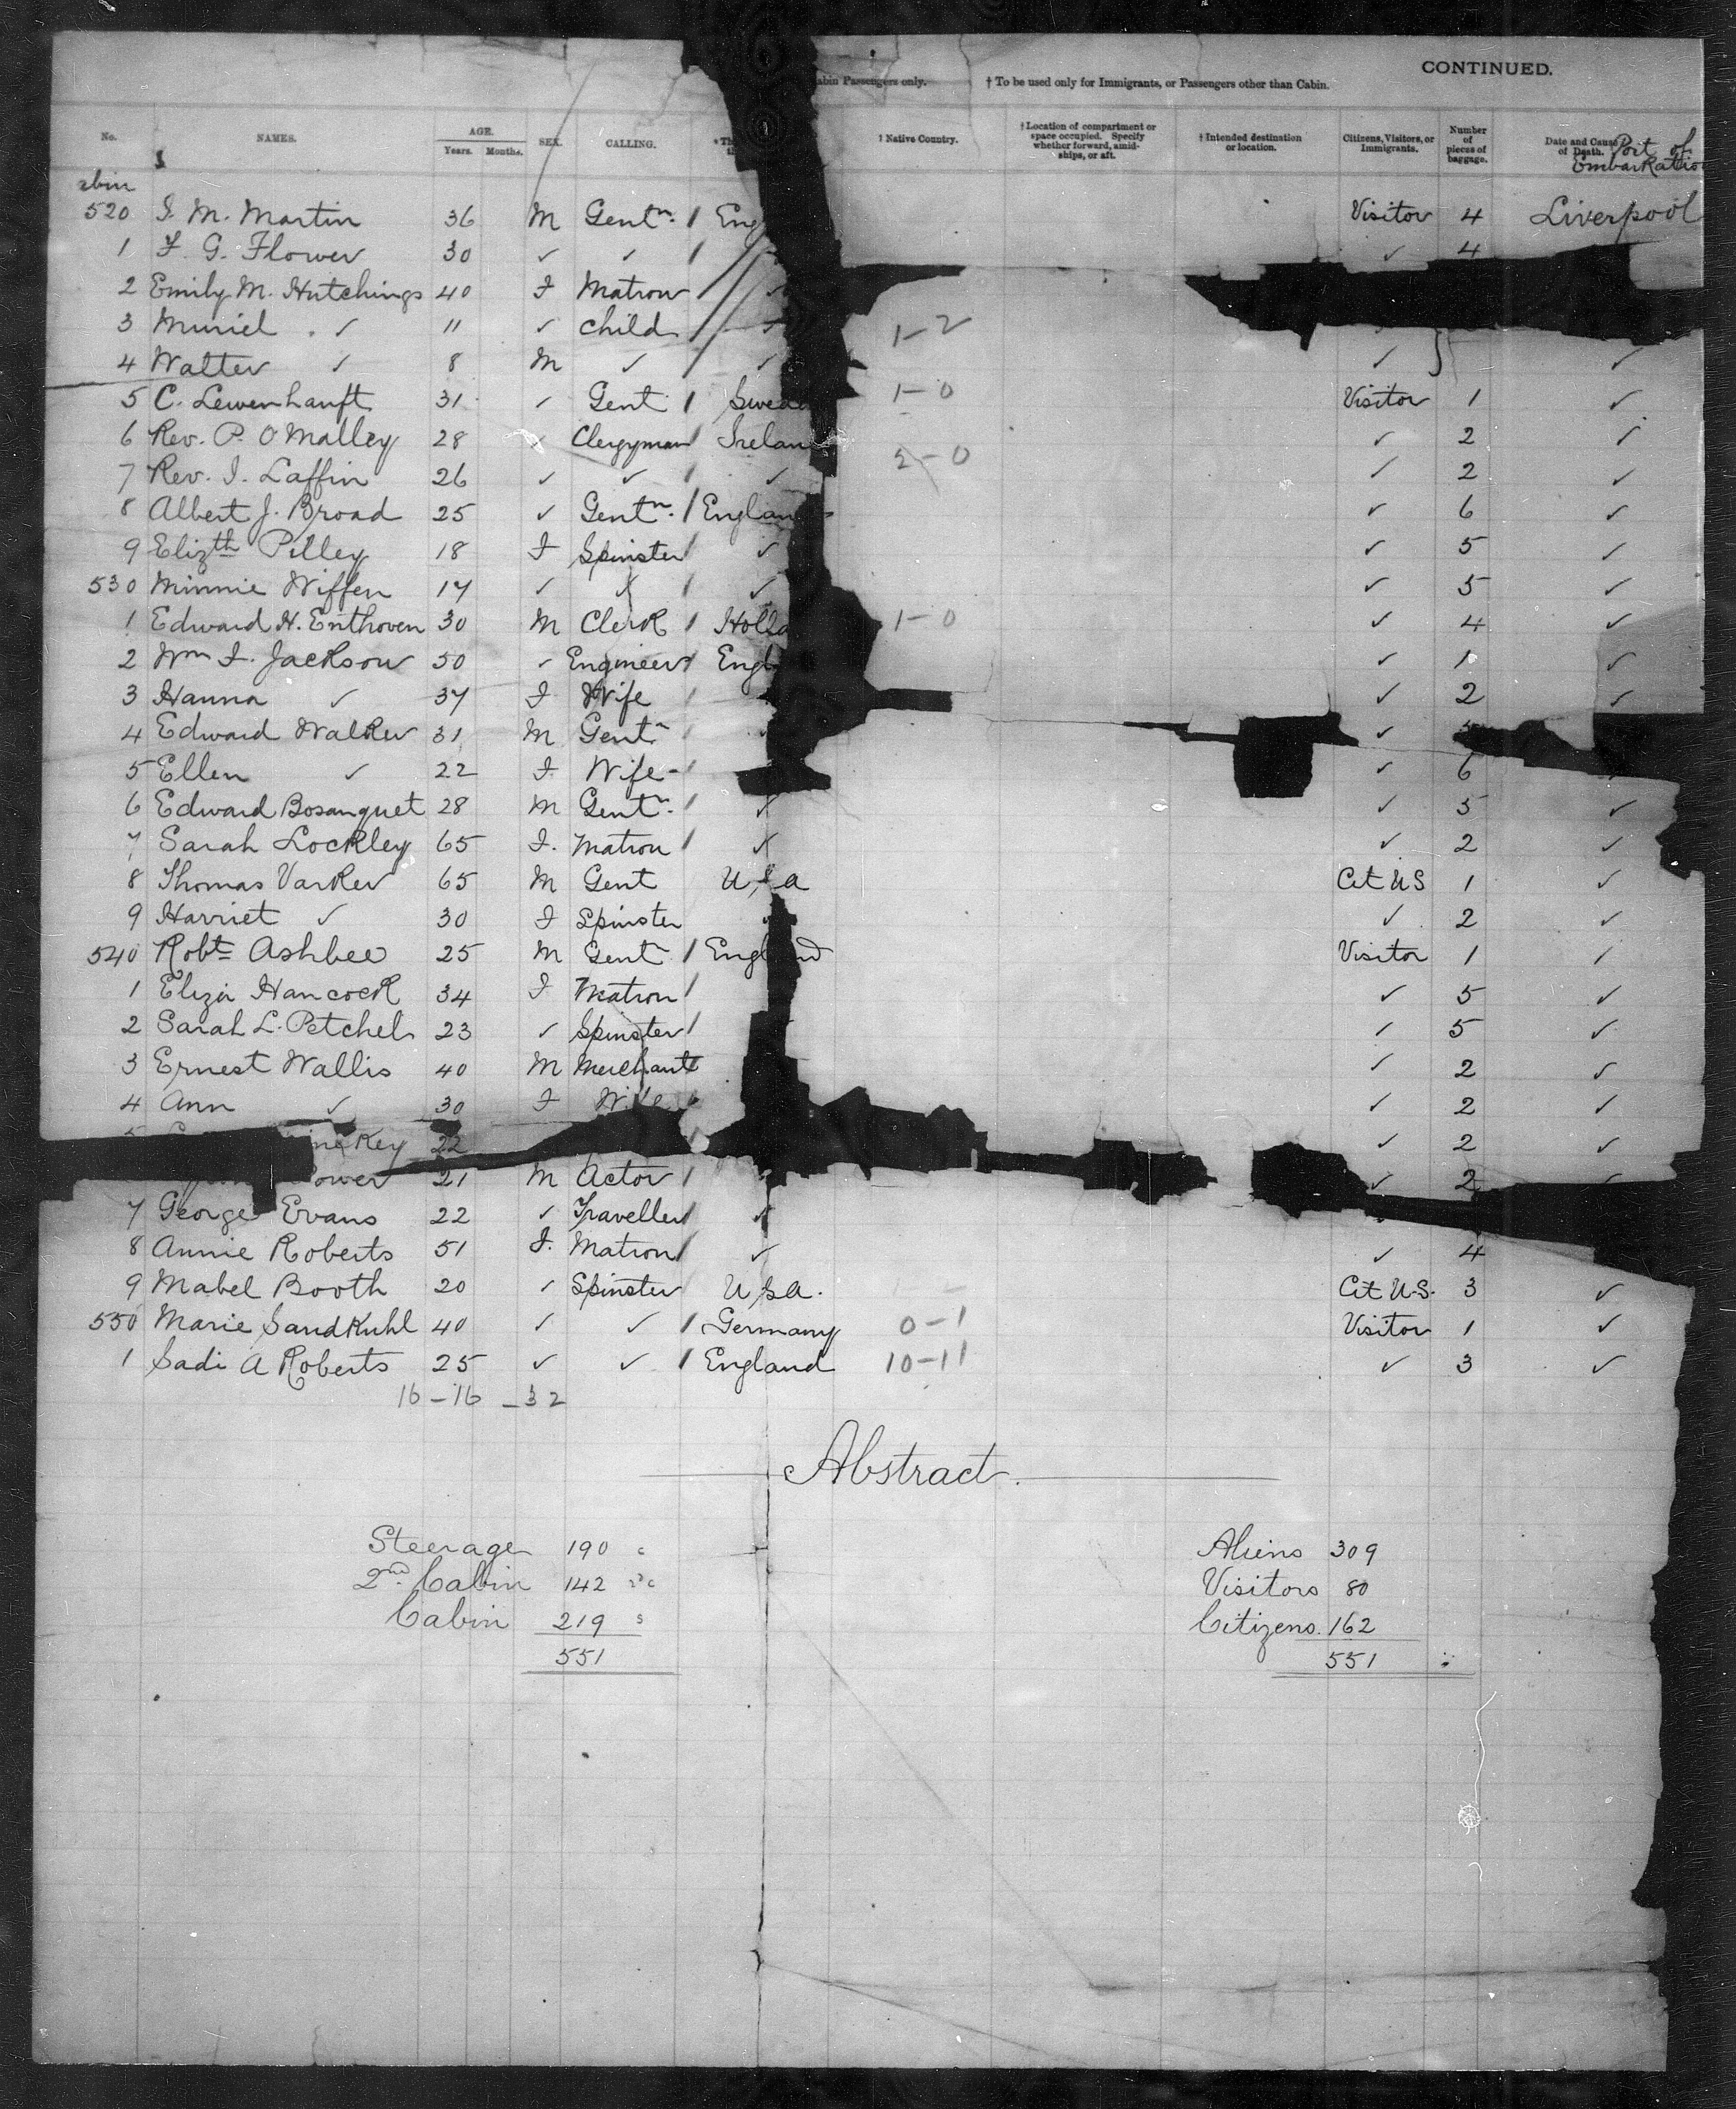 CONTINUED.
abin Passengers only. † To be used only for Immigrants, or Passengers other than Cabin.
No. NAMES. AGE. Years. Months. SEX. CALLING. † Native Country. † Location of compartment or space occupied. Specify whether forward, amidships, or aft. † Intended destination or location. Citizens, Visitors, or Immigrants. Number of pieces of baggage. Date and Cause of Death. Port of Embarkatio
abin
520 J. M. Martin 36 M Gentn. / Eng Visitor 4 Liverpool
1 F. G. Flower 30 ✓ ✓ / ✓ 4
2 Emily M. Hutchings 40 F Matron / ✓
3 Muriel ✓ 11 ✓ Child / ✓ 1-2
4 Walter ✓ 8 M ✓ ✓ ✓ ✓
5 C. Lewenhauft 31 ✓ Gent / Swede 1-0 Visitor 1 ✓
6 Rev. P. O'Malley 28 ✓ Clergyman / Irelan ✓ 2 ✓
7 Rev. J. Laffin 26 ✓ ✓ / ✓ 2-0 ✓ 2 ✓
8 Albert J. Broad 25 ✓ Gentn. / Englan ✓ 6 ✓
9 Elizth Pilley 18 F Spinster / ✓ ✓ 5 ✓
530 Minnie Wiffen 17 ✓ ✓ / ✓ ✓ 5 ✓
1 Edward H. Enthoven 30 M Clerk / Holla 1-0 ✓ 4 ✓
2 Wm F. Jackson 50 ✓ Engineer / Engl ✓ 1 ✓
3 Hanna ✓ 37 F Wife / ✓ 2 ✓
4 Edward Walker 31 M Gentn / ✓
5 Ellen ✓ 22 F Wife / ✓ 6
6 Edward Bosanquet 28 M Gentn. / ✓ ✓ 5 ✓
7 Sarah Lockley 65 F. Matron / ✓ ✓ 2 ✓
8 Thomas Varker 65 M Gent U.S.a Cit US 1 ✓
9 Harriet ✓ 30 F Spinster ✓ 2 ✓
540 Robt Ashbee 25 M Gent / England Visitor 1 /
1 Eliza Hancock 34 F Matron / ✓ 5 ✓
2 Sarah L. Petchel 23 ✓ Spinster / ✓ 5 ✓
3 Ernest Wallis 40 M Merchant / ✓ 2 ✓
4 Ann ✓ 30 F Wife / ✓ 2 ✓
key 22 ✓ 2 ✓
ower 21 M Actor / ✓ 2 ✓
7 George Evans 22 ✓ Traveller / ✓
8 Annie Roberts 51 F. Matron / ✓ ✓ 4
9 Mabel Booth 20 ✓ Spinster U.S.a. Cit U.S. 3 ✓
550 Marie Sandkuhl 40 ✓ ✓ / Germany 0-1 Visitor 1 ✓
1 Sadi A Roberts 25 ✓ ✓ / England 10-11 ✓ 3 ✓
16-16 - 32
Abstract.
Steerage 190 Aliens 309
2nd Cabin 142 Visitors 80
Cabin 219 Citizens. 162
551 551